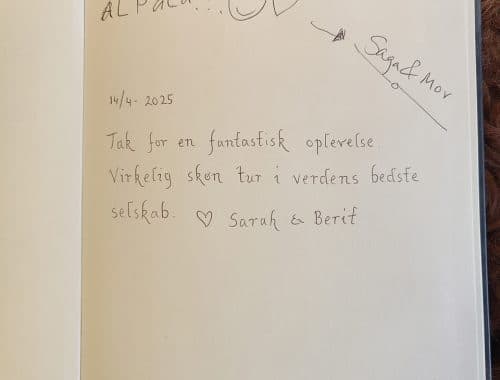 ALPACA...
Saga & Mor
14/4-2025
Tak for en fantastisk oplevelse
Virkelig skøn tur i verdens bedste
selskab. ♡ Sarah & Berit